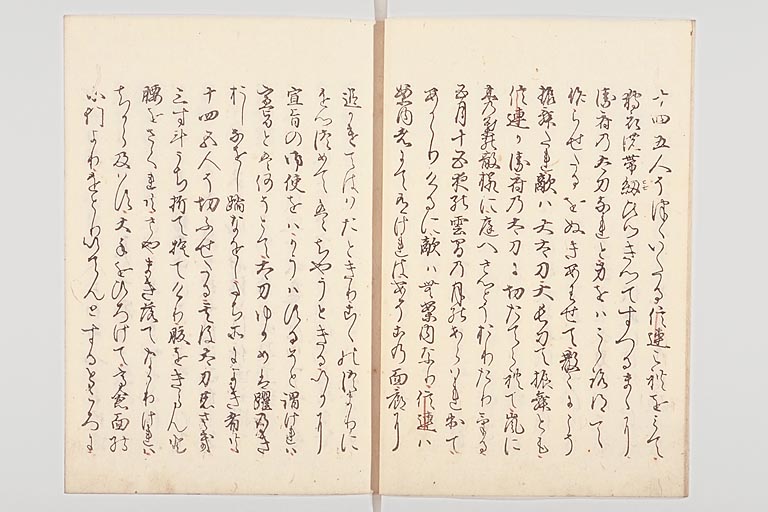 十四五人うちつゝいたる信連これをみて
狩衣の帯紐ひつきつてすつるまゝに
衛府の太刀なれと身をは心得て
作らせたるをぬきあはせて散々にこそ
振舞たれ敵は大太刀大長刀て振舞とも
信連か衛府の太刀に切たてられて嵐に
木の葉散様に庭へさとそおりたりける
五月十五夜の雲間の月のあらはれ出て
あかゝりけるに敵は無案内なり信連は
案内者にてありけれはあそこの面廊に
追かけてははたときりこゝの詰まりに
をし詰めてはちやうときるいかに
宣旨の御使をはかうはするそと謂けれは
宣旨とは何そとて太刀ゆかめは躍のき
おしなをし踏なをしたち所によき者とも
十四五人そ切ふせたる其後太刀のさき
三寸計うち折て捨てけり腹をきらんと
腰をさくれはさやまき落てなかりけれは
ちから及はす大手をひろけて高倉面の
小門よりはしりいてんとするところに